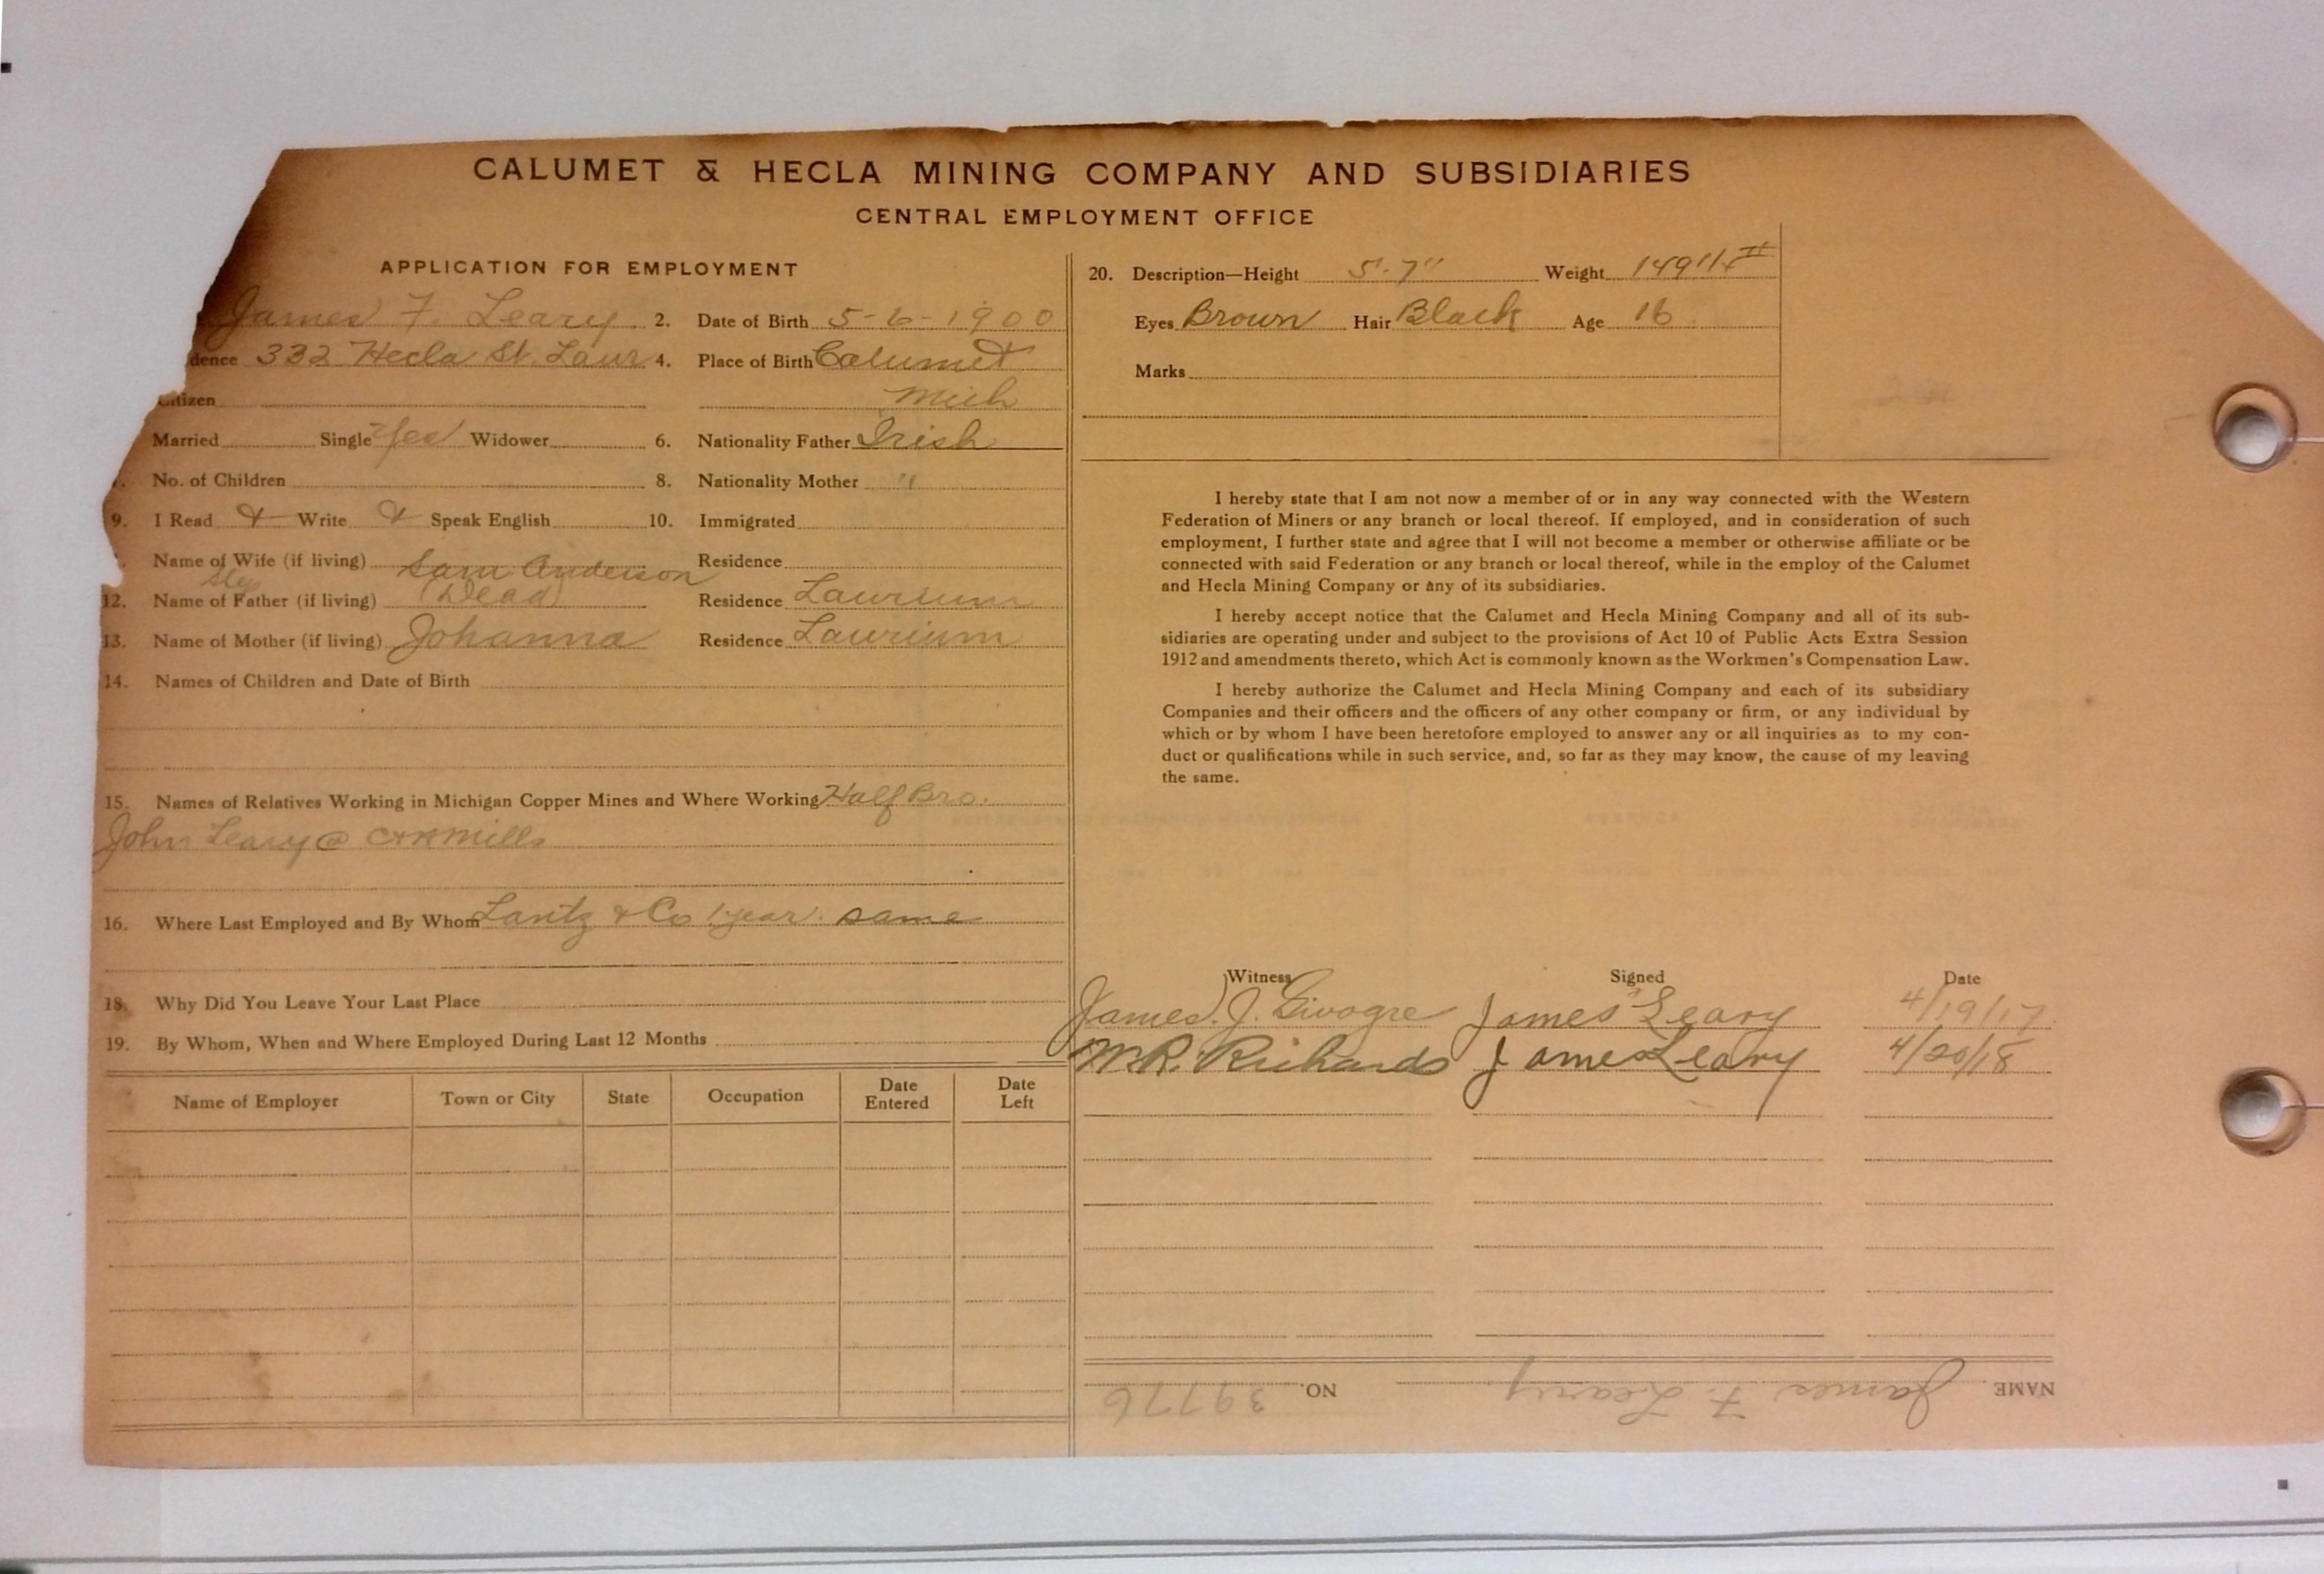 CALUMET & HECLA MINING COMPANY AND SUBSIDIARIES
CENTRAL EMPLOYMENT OFFICE
APPLICATION FOR EMPLOYMENT
James F. Leary 2. Date of Birth 5-6-1900
dence 332 Hecla St. Laur 4. Place of Birth Calumet
Citizen Mich
Married Single Yes Widower 6. Nationality Father Irish
No. of Children 8. Nationality Mother "
9. I Read & Write & Speak English 10. Immigrated
Name of Wife (if living) Sam Anderson Residence
Step
12. Name of Father (if living) (Dead) Residence Laurium
13. Name of Mother (if living) Johanna Residence Laurium
14. Names of Children and Date of Birth
15. Names of Relatives Working in Michigan Copper Mines and Where Working Half Bro.
John Leary @ C&H Mills
16. Where Last Employed and By Whom & Co 1 year. same
18. Why Did You Leave Your Last Place
19. By Whom, When and Where Employed During Last 12 Months
Name of Employer Town or City State Occupation Date Entered Date Left
20. Description—Height 5'-7" Weight 149
Eyes Brown Hair Black Age 16
Marks
I hereby state that I am not now a member of or in any way connected with the Western
Federation of Miners or any branch or local thereof. If employed, and in consideration of such
employment, I further state and agree that I will not become a member or otherwise affiliate or be
connected with said Federation or any branch or local thereof, while in the employ of the Calumet
and Hecla Mining Company or any of its subsidiaries.
I hereby accept notice that the Calumet and Hecla Mining Company and all of its sub-
sidiaries are operating under and subject to the provisions of Act 10 of Public Acts Extra Session
1912 and amendments thereto, which Act is commonly known as the Workmen's Compensation Law.
I hereby authorize the Calumet and Hecla Mining Company and each of its subsidiary
Companies and their officers and the officers of any other company or firm, or any individual by
which or by whom I have been heretofore employed to answer any or all inquiries as to my con-
duct or qualifications while in such service, and, so far as they may know, the cause of my leaving
the same.
Witness Signed Date
James J. James Leary 4/19/17
W.R. Richards James Leary 4/20/18
NAME James F. Leary NO. 39776